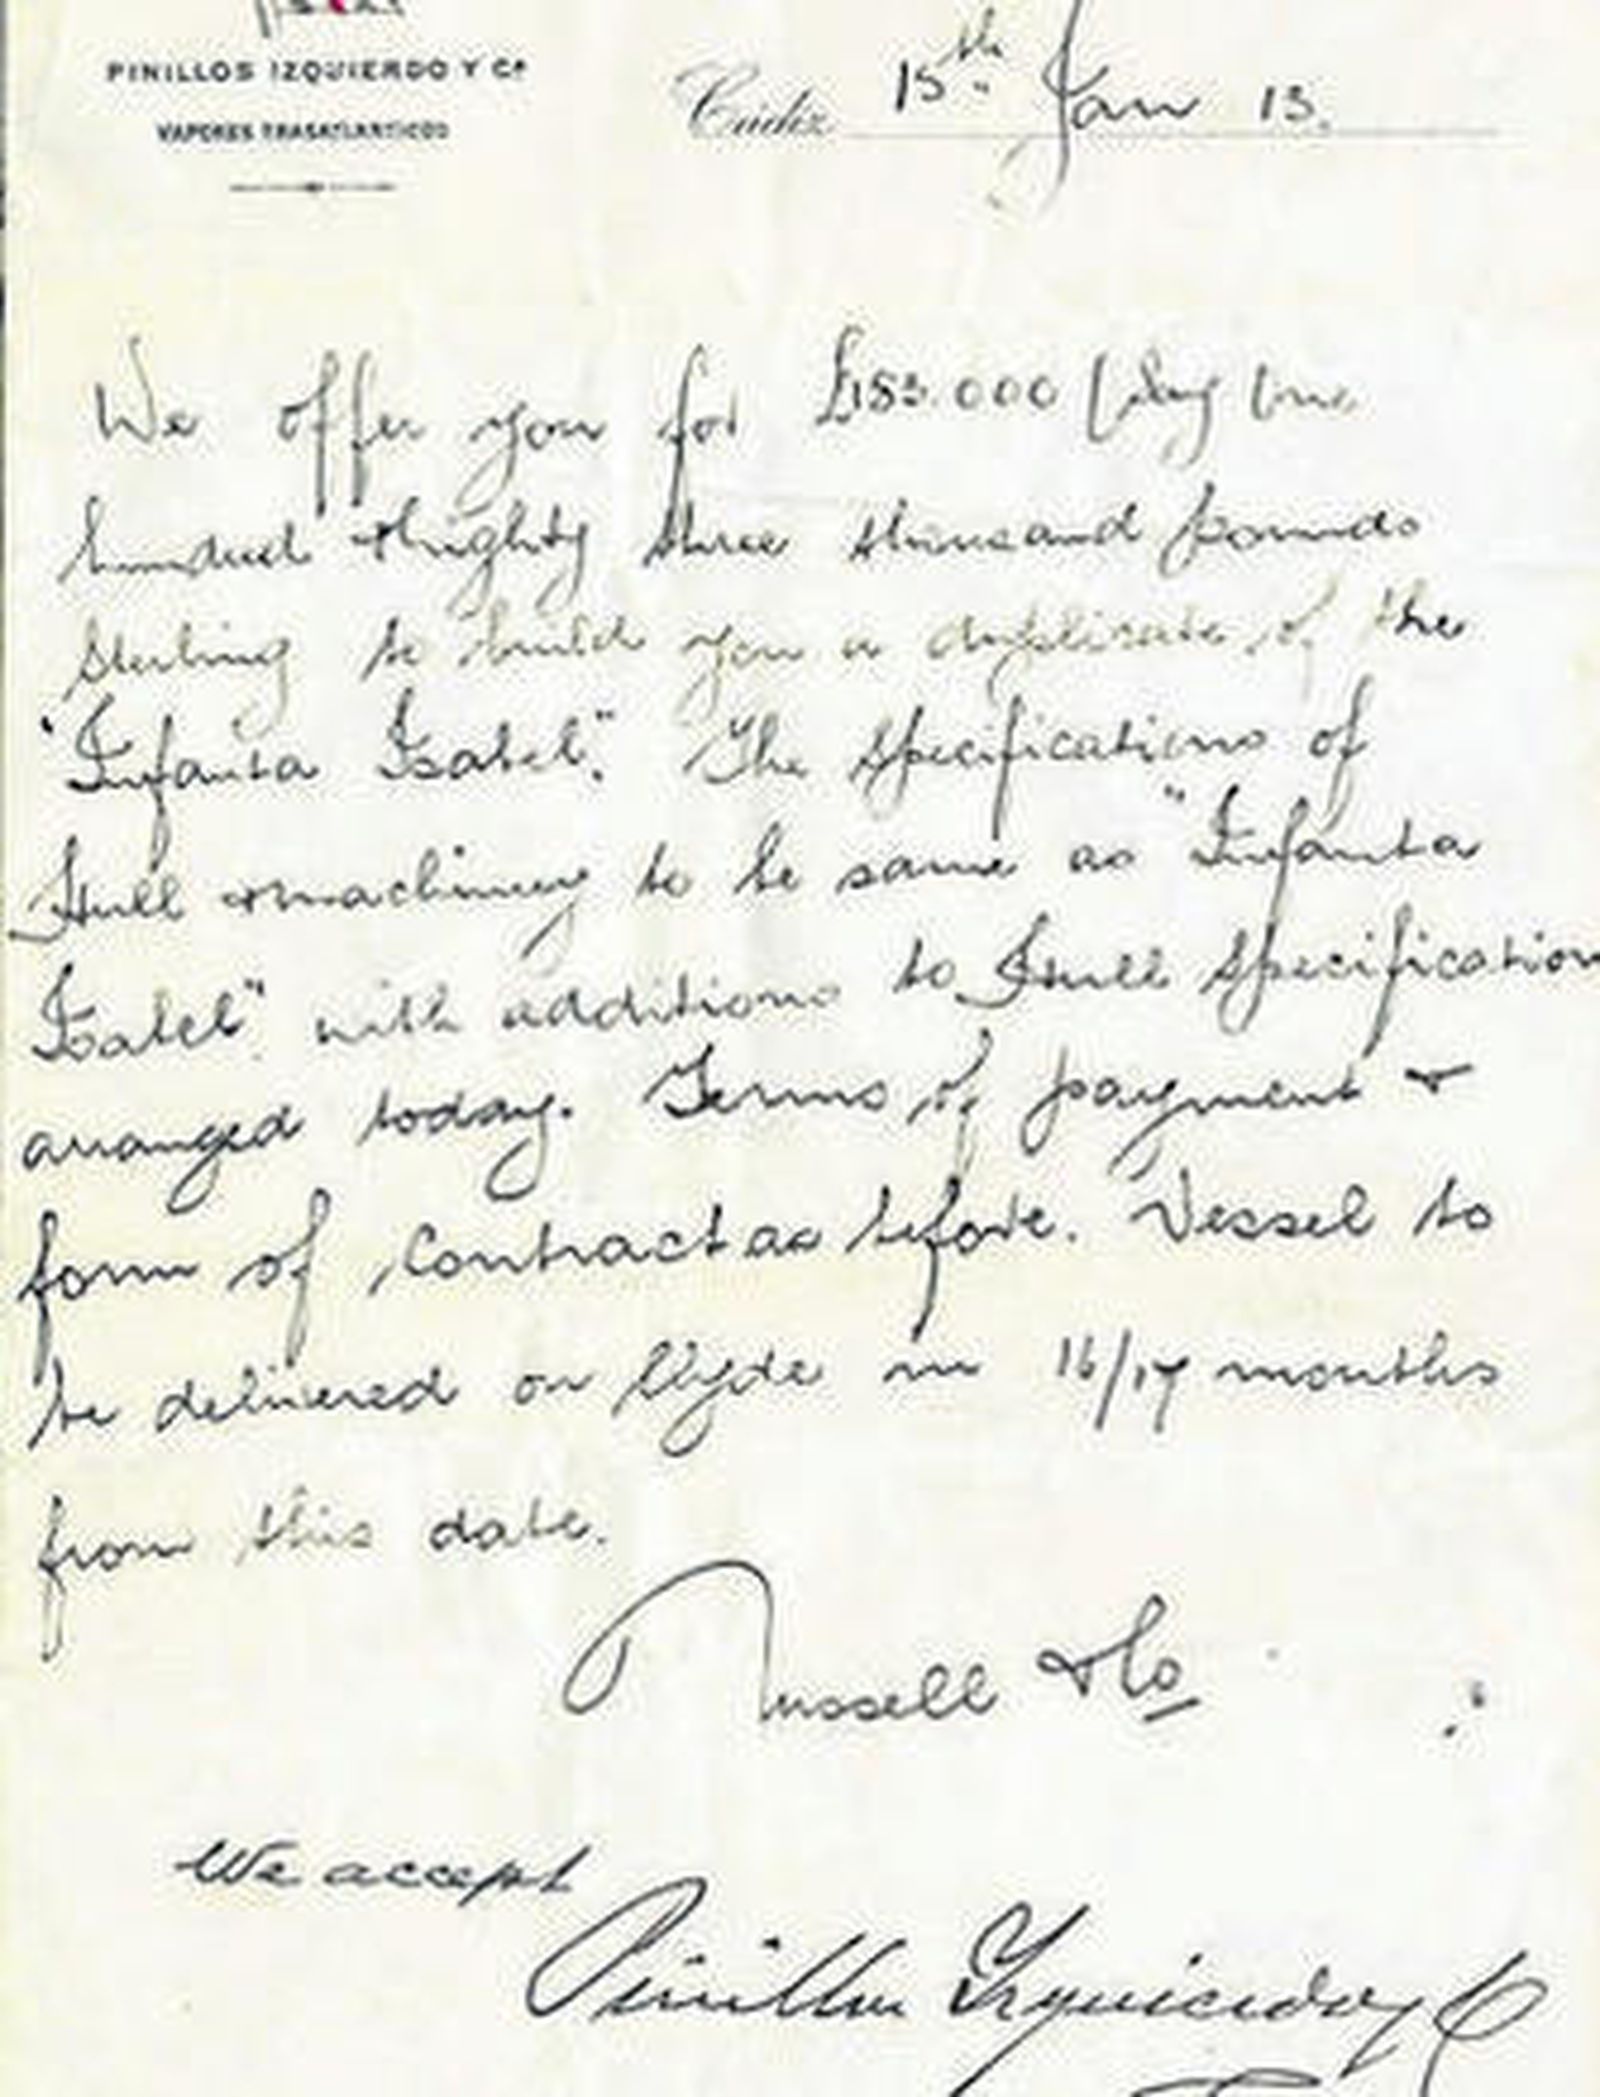 PINILLOS IZQUIERDO Y Cª
VAPORES TRASATLANTICOS
Cádiz 15th Jan 13.
We offer you for £183.000 (say One
hundred & eighty three thousand pounds
sterling to build you a duplicate of the
"Infanta Isabel". The specifications of
Hull & machinery to be same as "Infanta
Isabel" with additions to Hull specification
arranged today. Terms of payment &
form of Contract as before. Vessel to
be delivered on Clyde in 16/17 months
from this date.
Russell & Co
We accept
Pinillos Izquierdo y C